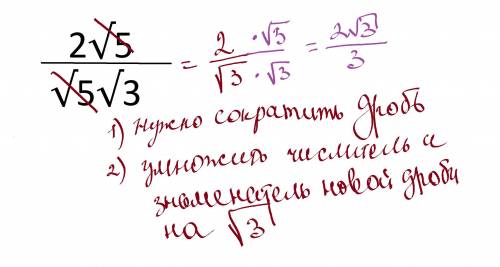 2√5 / √5√3 = 2 · √3 / √3 · √3 = 2√3 / 3
1) нужно сократить дробь
2) умножить числитель и
знаменатель новой дроби
на √3